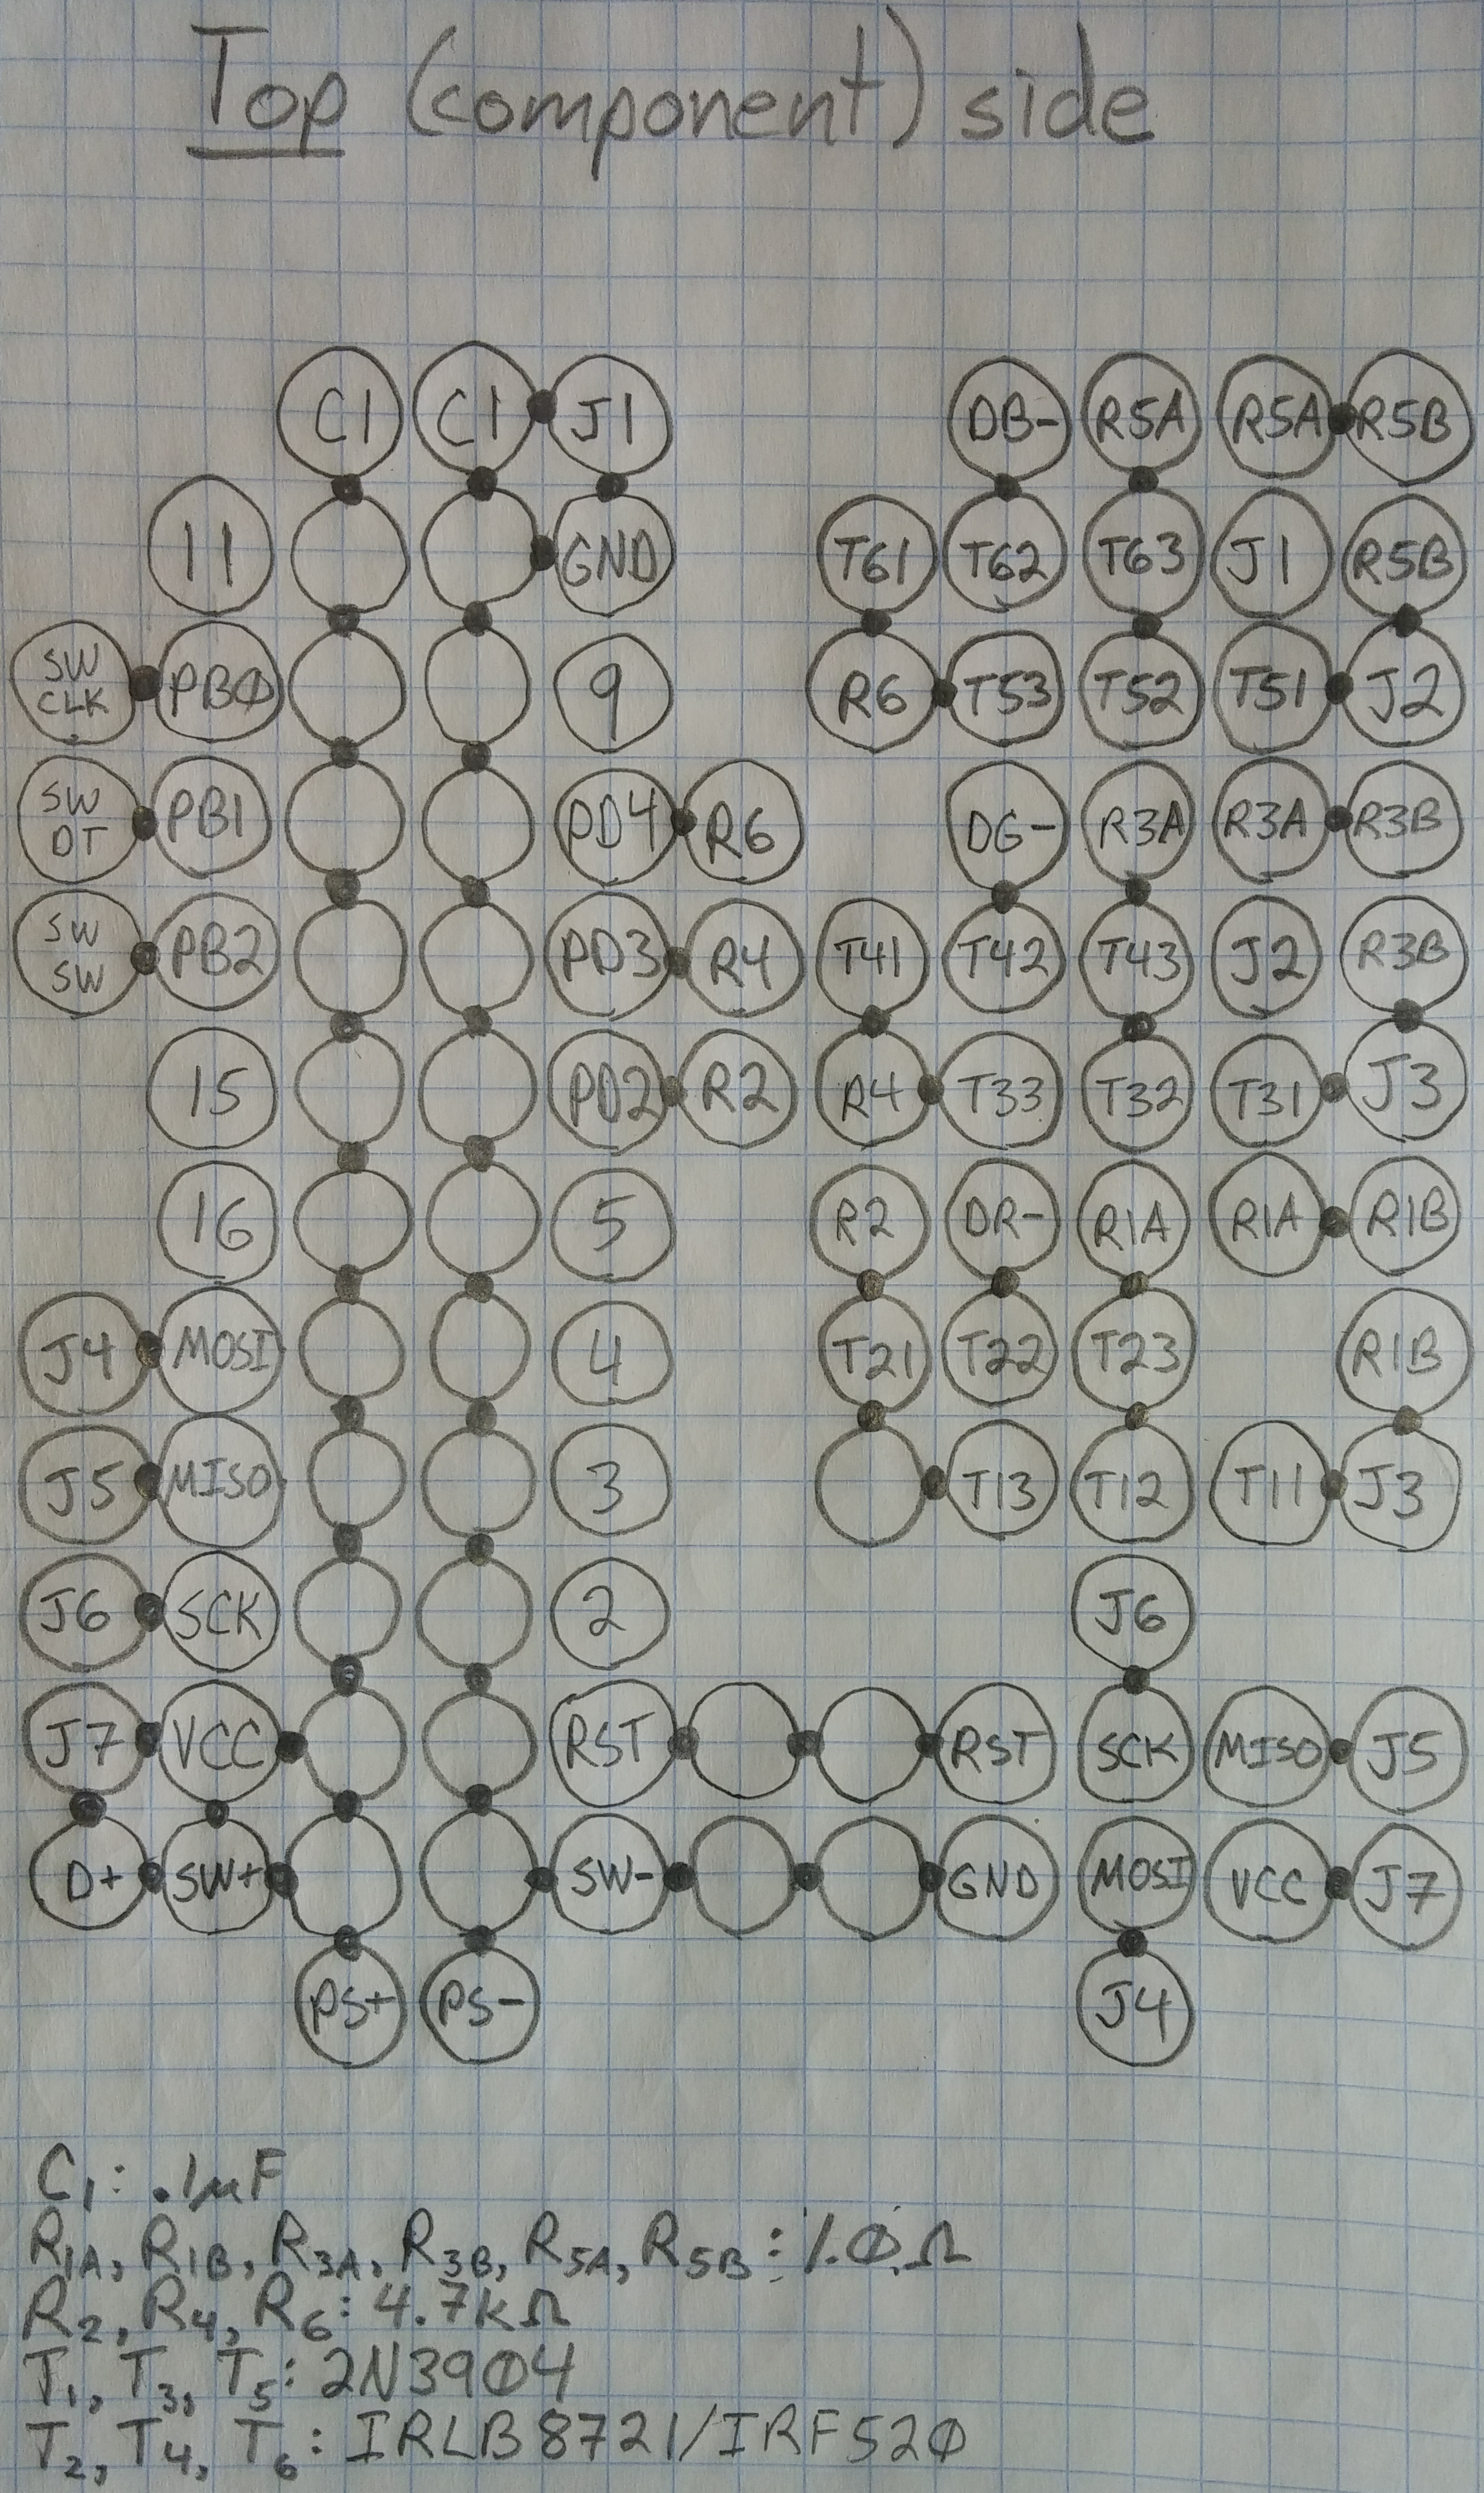 Top (component) side
C1 C1 J1 DB- R5A R5A R5B
11 GND T61 T62 T63 J1 R5B
SW CLK PB0 9 R6 T53 T52 T51 J2
SW DT PB1 PD4 R6 DG- R3A R3A R3B
SW SW PB2 PD3 R4 T41 T42 T43 J2 R3B
15 PD2 R2 R4 T33 T32 T31 J3
16 5 R2 DR- R1A R1A R1B
J4 MOSI 4 T21 T22 T23 R1B
J5 MISO 3 T13 T12 T11 J3
J6 SCK 2 J6
J7 VCC RST RST SCK MISO J5
D+ SW+ SW- GND MOSI VCC J7
PS+ PS- J4
C1: .1µF
R1A, R1B, R3A, R3B, R5A, R5B: 1.0Ω
R2, R4, R6: 4.7kΩ
T1, T3, T5: 2N3904
T2, T4, T6: IRLB8721/IRF520